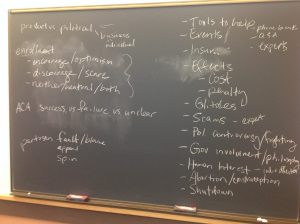 product vs political
business
individual
enrollment
- encourage/optimism
- discourage/scare
- neutral/both
ACA success vs failure vs unclear
partisan fault/blame
appeal
spin
- Tools to help
phone bank
- Events
Q&A
- experts
- Insur.
- Effects
- Cost
- penalty
- Glitches
- Scams - expert
- Pol controversy/infighting
- Gov involvement/philosophy
- Human Interest -
- Abortion/contraception
- Shutdown